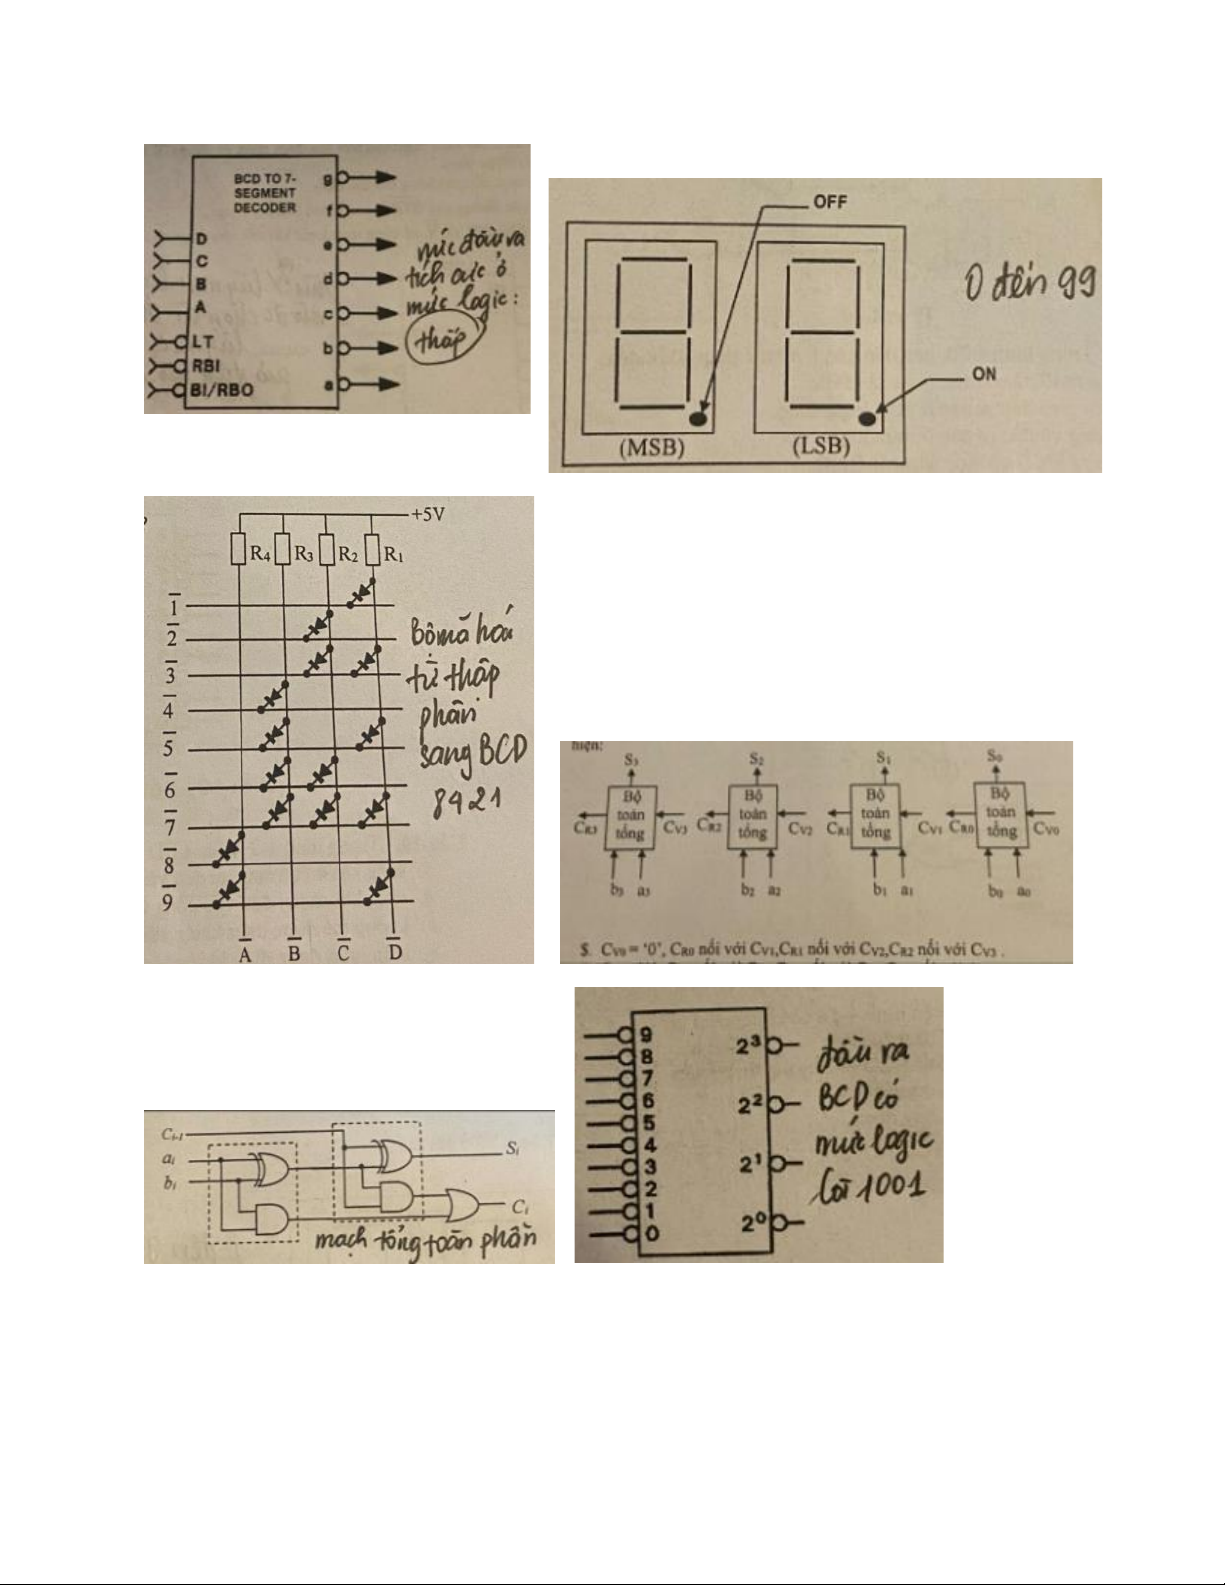 BCD TO 7-
SEGMENT
DECODER
g
f
e
d
c
b
a
D
C
B
A
LT
RBI
BI/RBO
mức đầu ra
tích cực ở
mức logic:
thấp
OFF
ON
(MSB)
(LSB)
0 đến 99
+5V
R4
R3
R2
R1
1
2
3
4
5
6
7
8
9
A
B
C
D
Bộ mã hoá
từ thập
phân
sang BCD
8421
hiện:
S3
S2
S1
S0
Bộ toàn tổng
Bộ toàn tổng
Bộ toàn tổng
Bộ toàn tổng
CR3
CV3
CR2
CV2
CR1
CV1
CR0
CV0
b3 a3
b2 a2
b1 a1
b0 a0
$. CV0 = '0', CR0 nối với CV1,CR1 nối với CV2,CR2 nối với CV3 .
Ci-1
ai
bi
Si
Ci
mạch tổng toàn phần
9
8
7
6
5
4
3
2
1
0
2³
2²
2¹
2⁰
đầu ra
BCD có
mức logic
là 1001